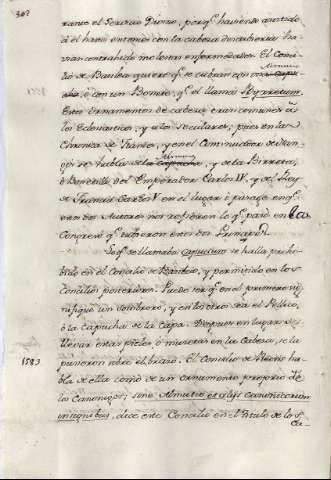 302
rante el Servicio Divino, porq.e haviendo asistido
á él hasta entonces con la cabeza descubierta ha
vian contrahido molestas enfermedades. El Conci
lio de Basilea quiere q.e se cubran con
ó con un Bonete, q.e el llama Byrretum.
Estos ornamentos de cabeza eran comunes á
los Eclesiasticos, y a los Seculares; pues en las
Chronicas de Flandes, y en el Continuador de Nan-
gis se habla de la y de la Birreta,
ó Bonetillo del Emperador Carlos IV, y del Rey
de Francia Carlos V en el lugar ó parage en q.e
estos dos Autores nos refieren lo q.e pasó en las
Congreso q.e tubieron estos dos Principes.
Lo q.e se llamaba capucium se halla prohi-
bido en el Concilio de Basilea, y permitido en los
Concilios posteriores. Puede ser q.e en el primero sig-
nifique un sombrero, y en los otros sea el Pellico,
ó la Capucha de la Capa. Despues en lugar de
llevar estas pieles ó mucetas en la Cabeza, se la
pusieron sobre el brazo. El Concilio de
1583
bla de ella como de un ornamento proprio de
los Canonigos; sine Almutio et aliis canonicorum
insignibus, dice este Concilio en el titulo de los
Ca-